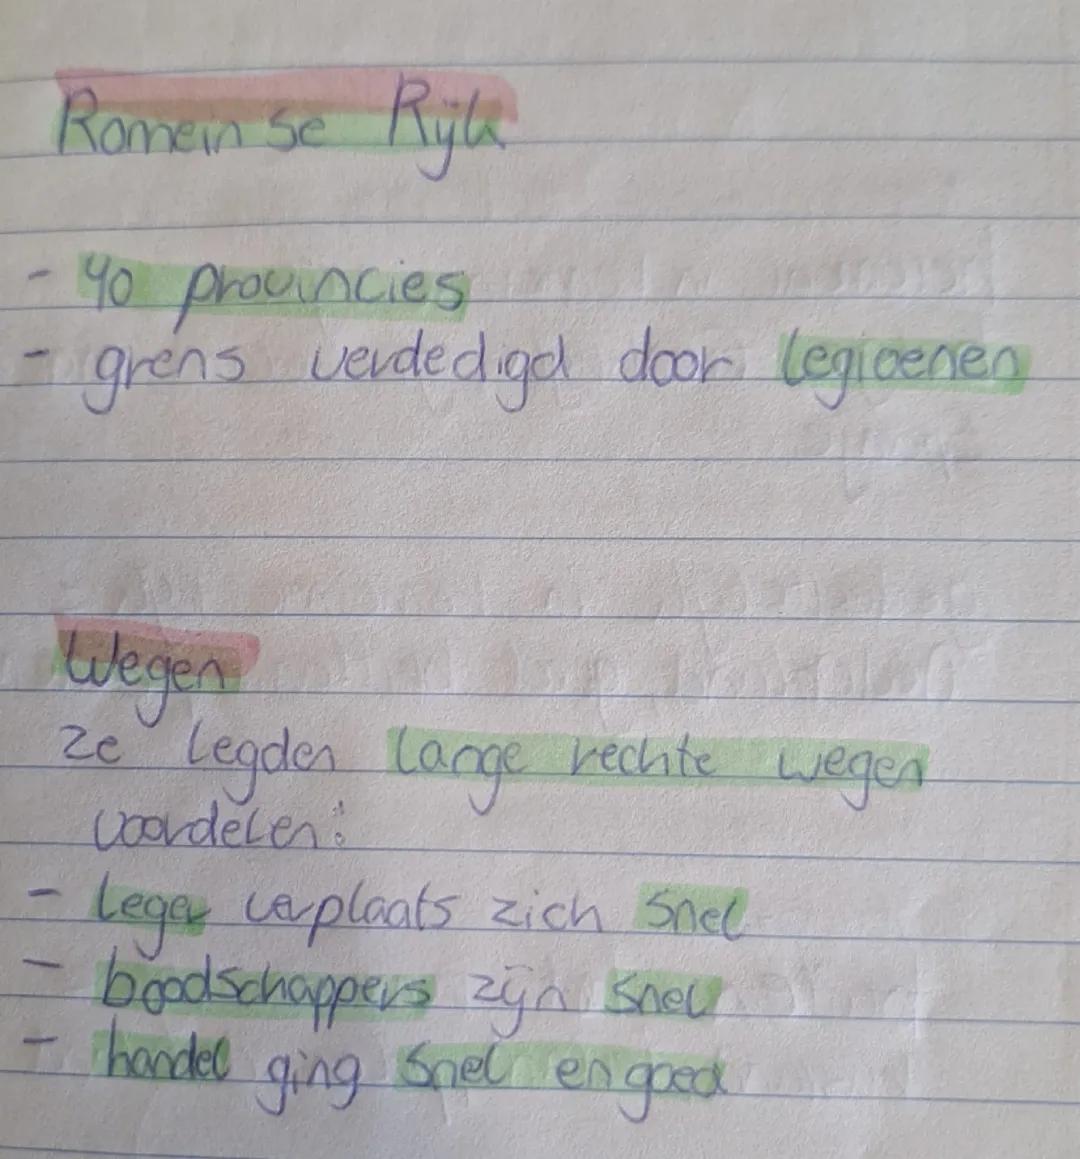 Romeinse Rijk
- 40 provincies
- grens verdedigd door legioenen
Wegen
ze legden lange rechte wegen
voordelen:
- leger verplaats zich snel
- boodschappers zijn snel
- handel ging snel en goed